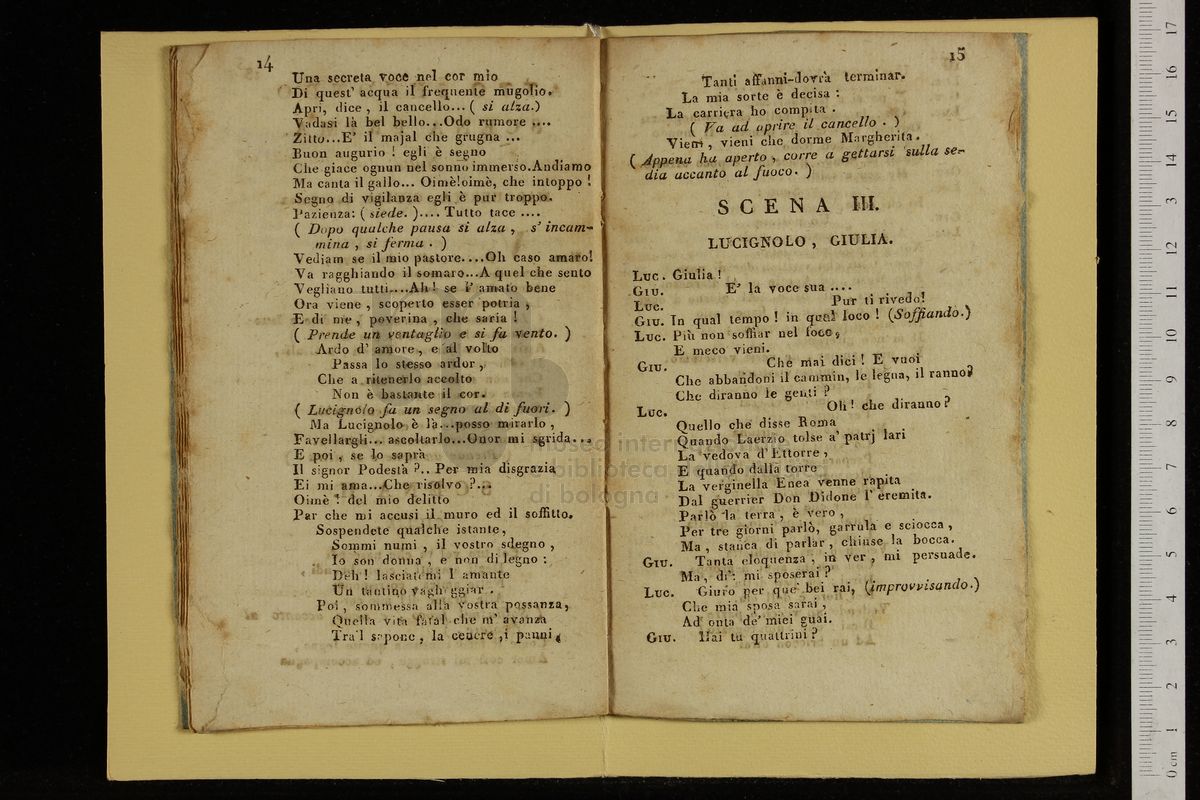 14
Una secreta voce nel cor mio
Di quest' acqua il frequente mugolio.
Apri, dice , il cancello... ( si alza.)
Vadasi là bel bello...Odo rumore ....
Zitto...E' il majal che grugna ...
Buon augurio ! egli è segno
Che giace ognun nel sonno immerso.Andiamo
Ma canta il gallo... Oimè!oimè, che intoppo !
Segno di vigilanza egli è pur troppo.
Pazienza: ( siede. ).... Tutto tace ....
( Dopo qualche pausa si alza , s' incam-
mina , si ferma . )
Vediam se il mio pastore....Oh caso amaro!
Va ragghiando il somaro...A quel che sento
Vegliano tutti....Ah! se l' amato bene
Ora viene , scoperto esser potria ,
E di me , poverina , che saria !
( Prende un ventaglio e si fa vento. )
Ardo d' amore , e al volto
Passa lo stesso ardor ,
Che a ritenerlo accolto
Non è bastante il cor.
( Lucignolo fa un segno al di fuori. )
Ma Lucignolo è là...posso mirarlo ,
Favellargli... ascoltarlo...Onor mi sgrida...
E poi , se lo saprà
Il signor Podestà ?.. Per mia disgrazia
Ei mi ama...Che risolvo ?...
Oimè ! del mio delitto
Par che mi accusi il muro ed il soffitto.
Sospendete qualche istante,
Sommi numi , il vostro sdegno ,
Io son donna , e non di legno :
Deh ! lasciatemi l' amante
Un tantino vagheggiar .
Poi , sommessa alla vostra possanza,
Quella vita fatal che m' avanza
Tra'l sapone , la cenere ,i panni,
15
Tanti affanni dovrà terminar.
La mia sorte è decisa :
La carriera ho compita .
( Va ad aprire il cancello . )
Vieni , vieni che dorme Margherita.
( Appena ha aperto , corre a gettarsi sulla se-
dia accanto al fuoco. )
SCENA III.
LUCIGNOLO , GIULIA.
Luc. Giulia !
Giu. E' la voce sua ....
Luc. Pur ti rivedo!
Giu. In qual tempo ! in qual loco ! (Soffiando.)
Luc. Più non soffiar nel foco,
E meco vieni.
Giu. Che mai dici ! E vuoi
Che abbandoni il cammin, le legna, il ranno?
Che diranno le genti ?
Luc. Oh ! che diranno?
Quello che disse Roma
Quando Laerzio tolse a' patrj lari
La vedova d' Ettorre ,
E quando dalla torre
La verginella Enea venne rapita
Dal guerrier Don Didone l' eremita.
Parlò la terra , è vero ,
Per tre giorni parlò, garrula e sciocca ,
Ma , stanca di parlar , chiuse la bocca.
Giu. Tanta eloquenza , in ver , mi persuade.
Ma , di': mi sposerai ?
Luc. Giuro per que' bei rai, (improvvisando.)
Che mia sposa sarai ,
Ad onta de' miei guai.
Giu. Hai tu quattrini ?
museo internazionale
biblioteca
di bologna